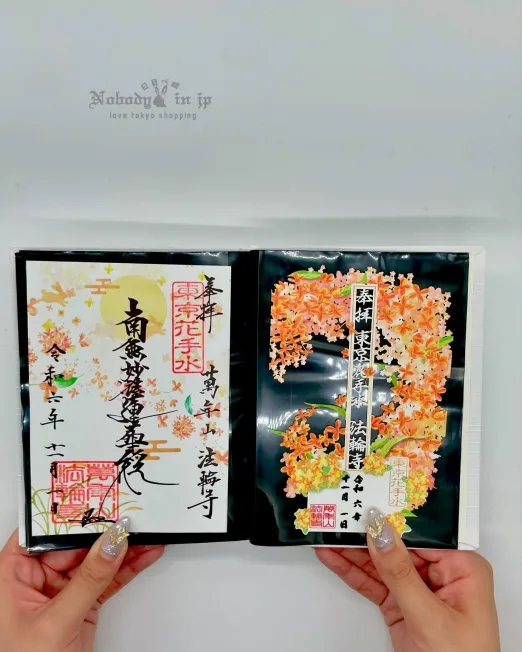 Nobody in jp
love tokyo shopping
奉拝 萬年山 法輪寺
東京花手水
南無妙法蓮華経
令和六年 十一月一日
奉拝 東京花手水 法輪寺
東京花手水
令和 六年
十一月 一日